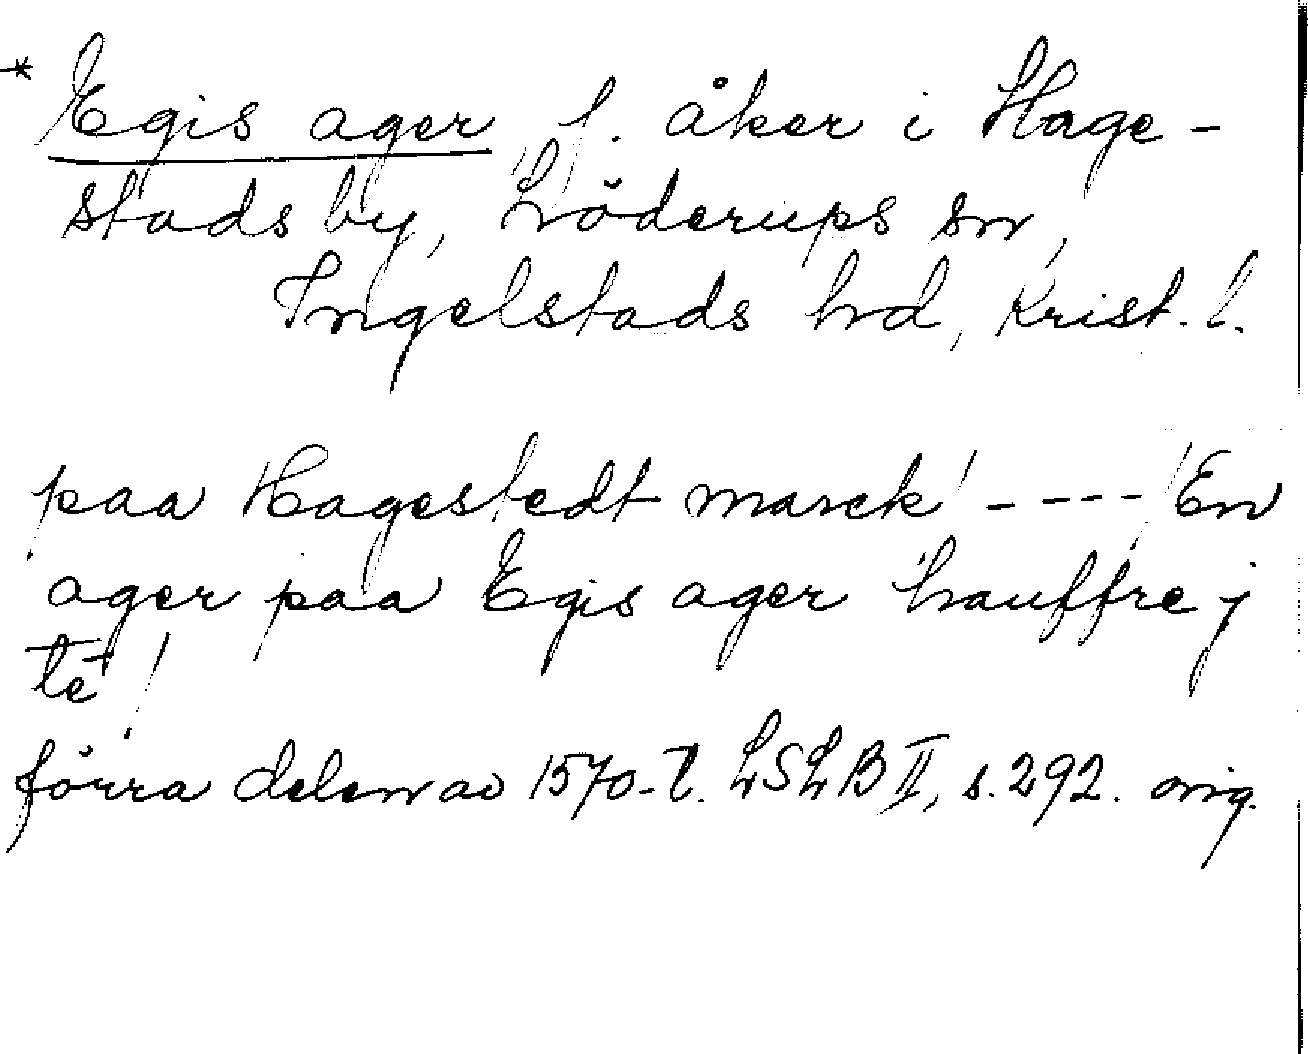 * Egis ager, f. åker i Hage-
stads by, Löderups sn,
Ingelstads hd, Krist. l.
paa Hagestedt marck / - - - - / En
ager paa Egis ager hauffre j
tē /
förra delen av 1570-t. LSLB II, s. 292. orig.